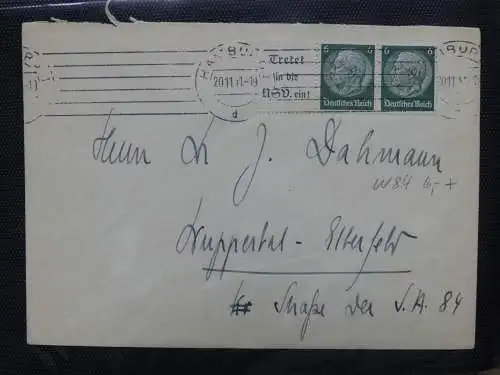 HAMBURG
20.11.41-19
d
Tretet
in die
NSV. ein!
6 6
Deutsches Reich
6 6
Deutsches Reich
BURG
20.11.41
Herrn Dr J. Dahmann
W84 6,- +
Wuppertal-Elberfeld
Straße der S.A. 84